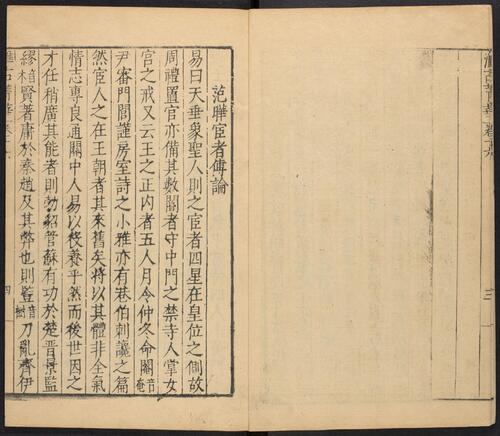 范曄宦者傳論
易曰天垂象聖人則之宦者四星在皇位之側故
周禮置官亦備其數閽者守中門之禁寺人掌女
官之戒又云王之正内者五人月令仲冬命閹音奄
尹審門閭謹房室詩之小雅亦有巷伯刺讒之篇
然宦人之在王朝者其來舊矣將以其體非全氣
情志專良通關中人易以役養乎然而後世因之
才任稍廣其能者則勃紹管蘇有功於楚晋景監
繆音木賢著庸於秦趙及其弊也則竪音樹刀亂齊伊
四